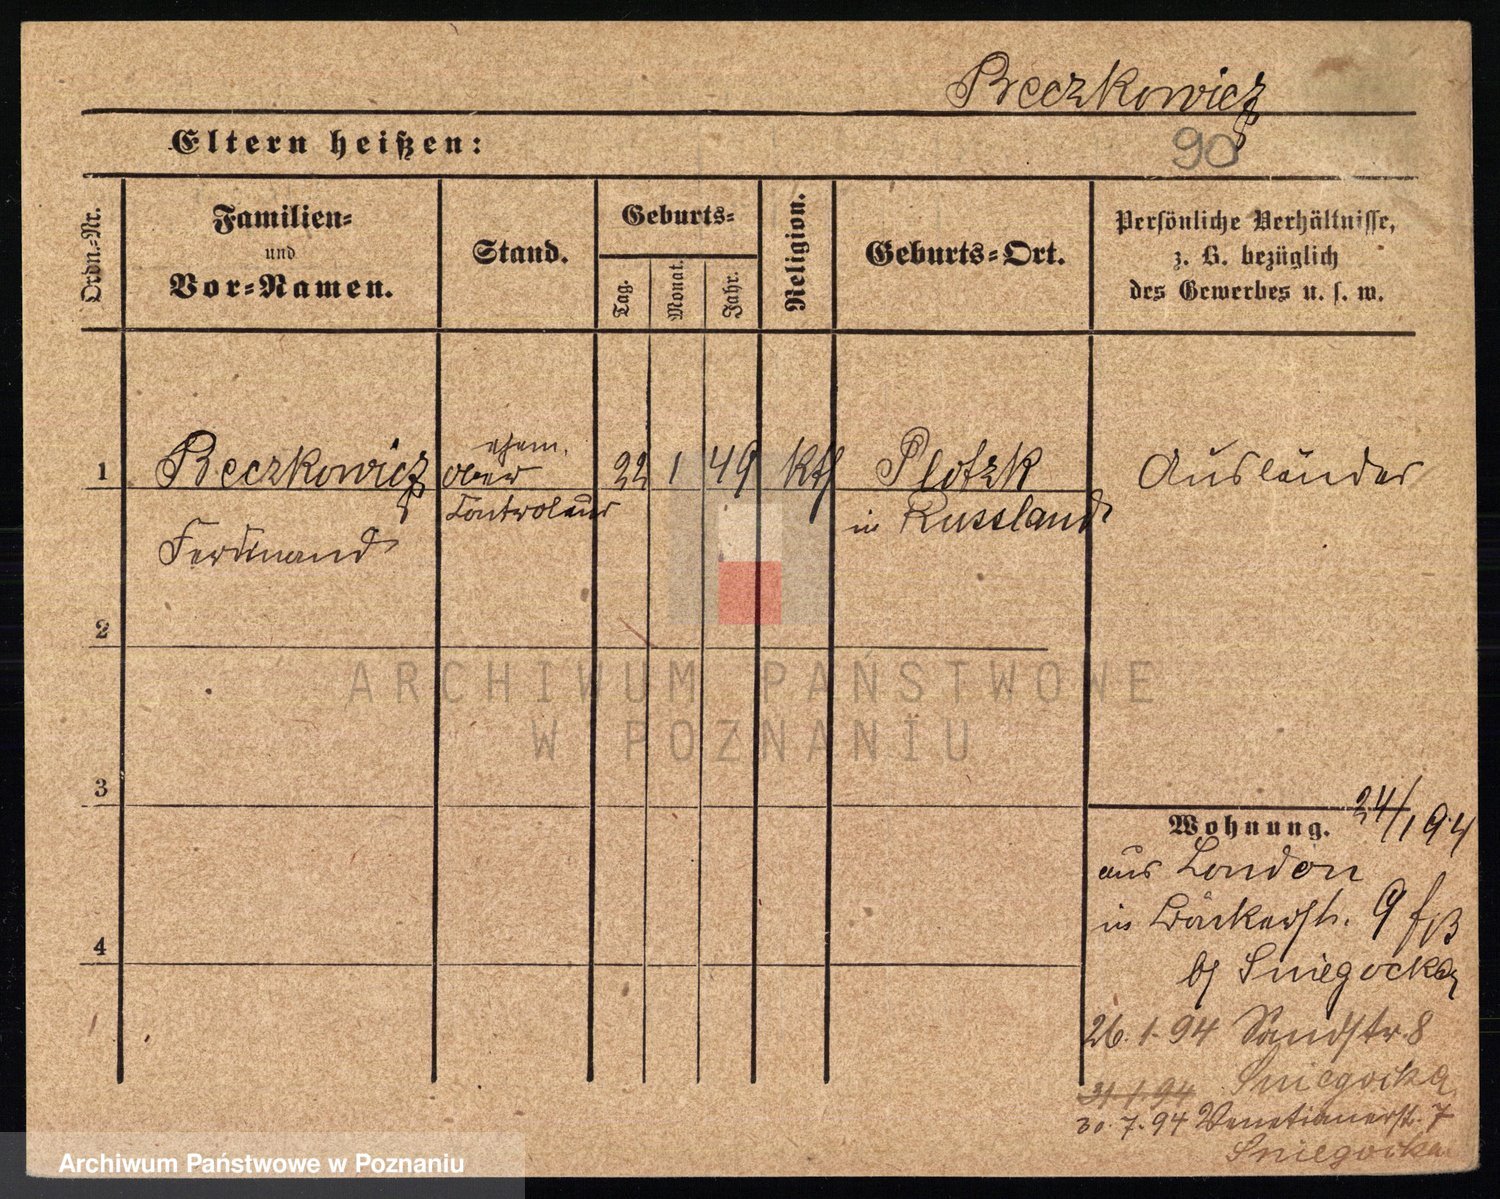 Beczkowicz
90
Eltern heißen:
Ordn.-Nr.
Familien-
und
Vor-Namen.
Stand.
Geburts-
Tag.
Monat.
Jahr.
Religion.
Geburts-Ort.
Persönliche Verhältnisse,
z. B. bezüglich
des Gewerbes u. s. w.
1
Beczkowicz
Ferdinand
ehem.
Ober
Controleur
22
1
49
kth
Plotzk
in Russland
Ausländer
2
3
4
Wohnung.
24/1 94
aus London
in Bäckerstr. 9
bj Sniegocka
26. 1. 94 Sandstr. 8
Sniegocka
31 1. 94
30. 7. 94 Venetianerstr. 7
Sniegocka
ARCHIWUM PAŃSTWOWE
W POZNANIU
Archiwum Państwowe w Poznaniu